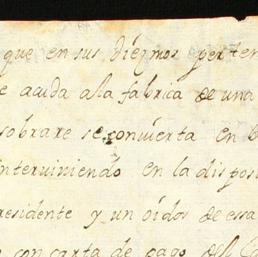 que en sus diezmos perten
e acuda a la fabrica de una
sobrare se convierta en b
interviniendo en la dispos
residente y un oidor de essa
con carta de pago del C